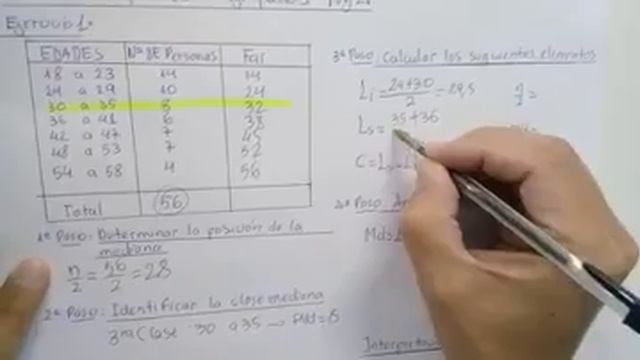 Ejercicio 1:
EDADES Nº DE Personas Far
18 a 23 14 14
24 a 29 10 24
30 a 35 8 32
36 a 41 6 38
42 a 47 7 45
48 a 53 7 52
54 a 58 4 56
Total 56
1º Paso: Determinar la posición de la
mediana
n/2 = 56/2 = 28
2º Paso: Identificar la clase mediana
3ra Clase 30 a 35 → Md=
3º Paso: Calcular los siguientes elementos
Li = 29+30/2 = 29,5
n/2 =
Ls = 35+36
C = Ls - L
Paso
Md=L